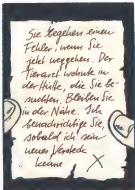 Sie begehen einen
Fehler, wenn Sie
jetzt weggehen. Der
Tierarzt wohnte in
der Hütte, die Sie be-
suchten. Bleiben Sie
in der Nähe. Ich
benachrichtige Sie,
sobald ich sein
neues Versteck
kenne
X